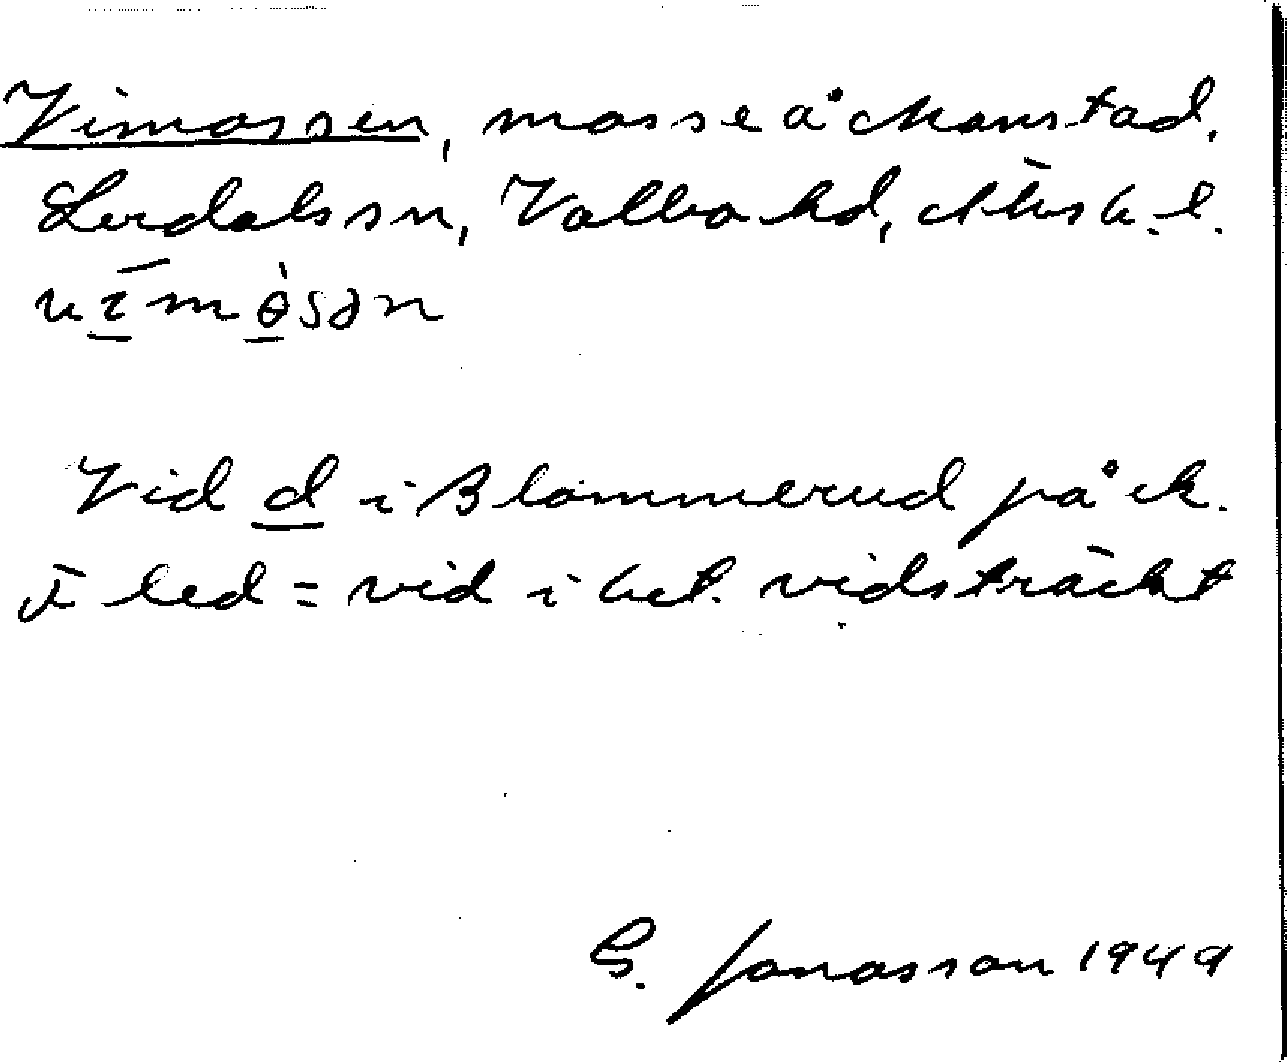 Vimossen, mosse å Manstad,
Lerdals sn, Valbo hd, Älvsb. l.
vīmòsən
Vid d i Blommerud på ek.
F led = vid i bet. vidsträckt
G. Jonasson 1949